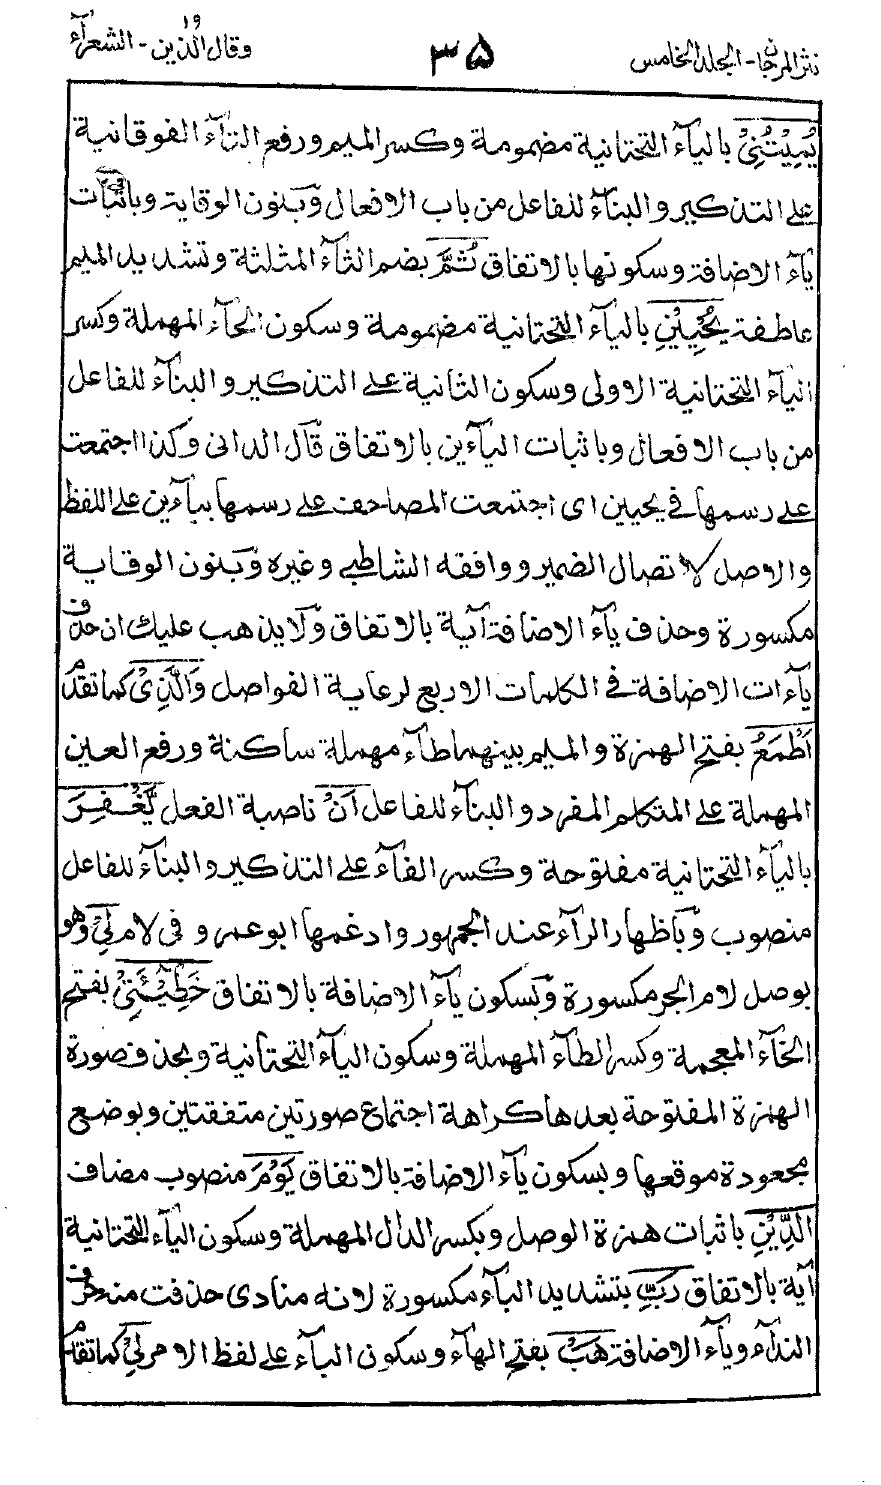 نثر المرجان - المجلد الخامس ٣٥ وقال الذين ١٩ - الشعرآء
يُمِيْتُنِيْ باليآء التحتانية مضمومة وكسر الميم ورفع التآء الفوقانية
على التذكير والبنآء للفاعل من باب الافعال وَبنون الوقاية وباثبات
يآء الاضافة وسكونها بالاتفاق ثُمَّ بضم الثآء المثلثة وتشديد الميم
عاطفة يُحْيِيْنِ باليآء التحتانية مضمومة وسكون الحآء المهملة وكسر
اليآء التحتانية الاولى وسكون الثانية على التذكير والبنآء للفاعل
من باب الافعال وباثبات اليآءين بالاتفاق قَال الدانى وكذا اجتمعت
على رسمها في يحيين اى اجتمعت المصاحف على رسمها بيآءين على اللفظ
والاصل لاتصال الضمير ووافقه الشاطبي وغيره وَبنون الوقاية
مكسورة وحذف يآء الاضافة آية بالاتفاق وَلا يذهب عليك ان حذف
يآءات الاضافة في الكلمات الاربع لرعاية الفواصل وَالَّذِيْ كما تقدم
اَطْمَعُ بفتح الهمزة والميم بينهما طآء مهملة ساكنة ورفع العين
المهملة على المتكلم المفرد والبنآء للفاعل اَنْ ناصبة الفعل يَّغْفِرَ
باليآء التحتانية مفتوحة وكسر الفآء على التذكير والبنآء للفاعل
منصوب وَباظهار الرآء عند الجمهور وادغمها ابو عمرو في لام لِيْ وهو
بوصل لام الجر مكسورة وَبسكون يآء الاضافة بالاتفاق خَطِيْٓئَتِيْ بفتح
الخآء المعجمة وكسر الطآء المهملة وسكون اليآء التحتانية وبحذف صورة
الهمزة المفتوحة بعدها كراهة اجتماع صورتين متفقتين وبوضع
مجعودة موقعها وبسكون يآء الاضافة بالاتفاق يَوْمَ منصوب مضاف
الدِّيْنِ باثبات همزة الوصل وبكسر الدال المهملة وسكون اليآء التحتانية
آية بالاتفاق رَبِّ بتشديد البآء مكسورة لانه منادى حذفت منه حرف
الندآء ويآء الاضافة هَبْ بفتح الهآء وسكون البآء على لفظ الامر لِيْ كما تقدم